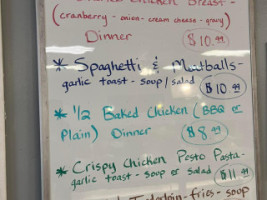 Chicken Breast -
(cranberry - onion - cream cheese - gravy)
Dinner $10.99
* Spaghetti & Meatballs -
garlic toast - soup/salad $10.99
* 1/2 Baked Chicken (BBQ or
Plain) Dinner $8.99
* Crispy Chicken Pesto Pasta -
garlic toast - soup or salad $11.99
Tenderloin - fries - soup